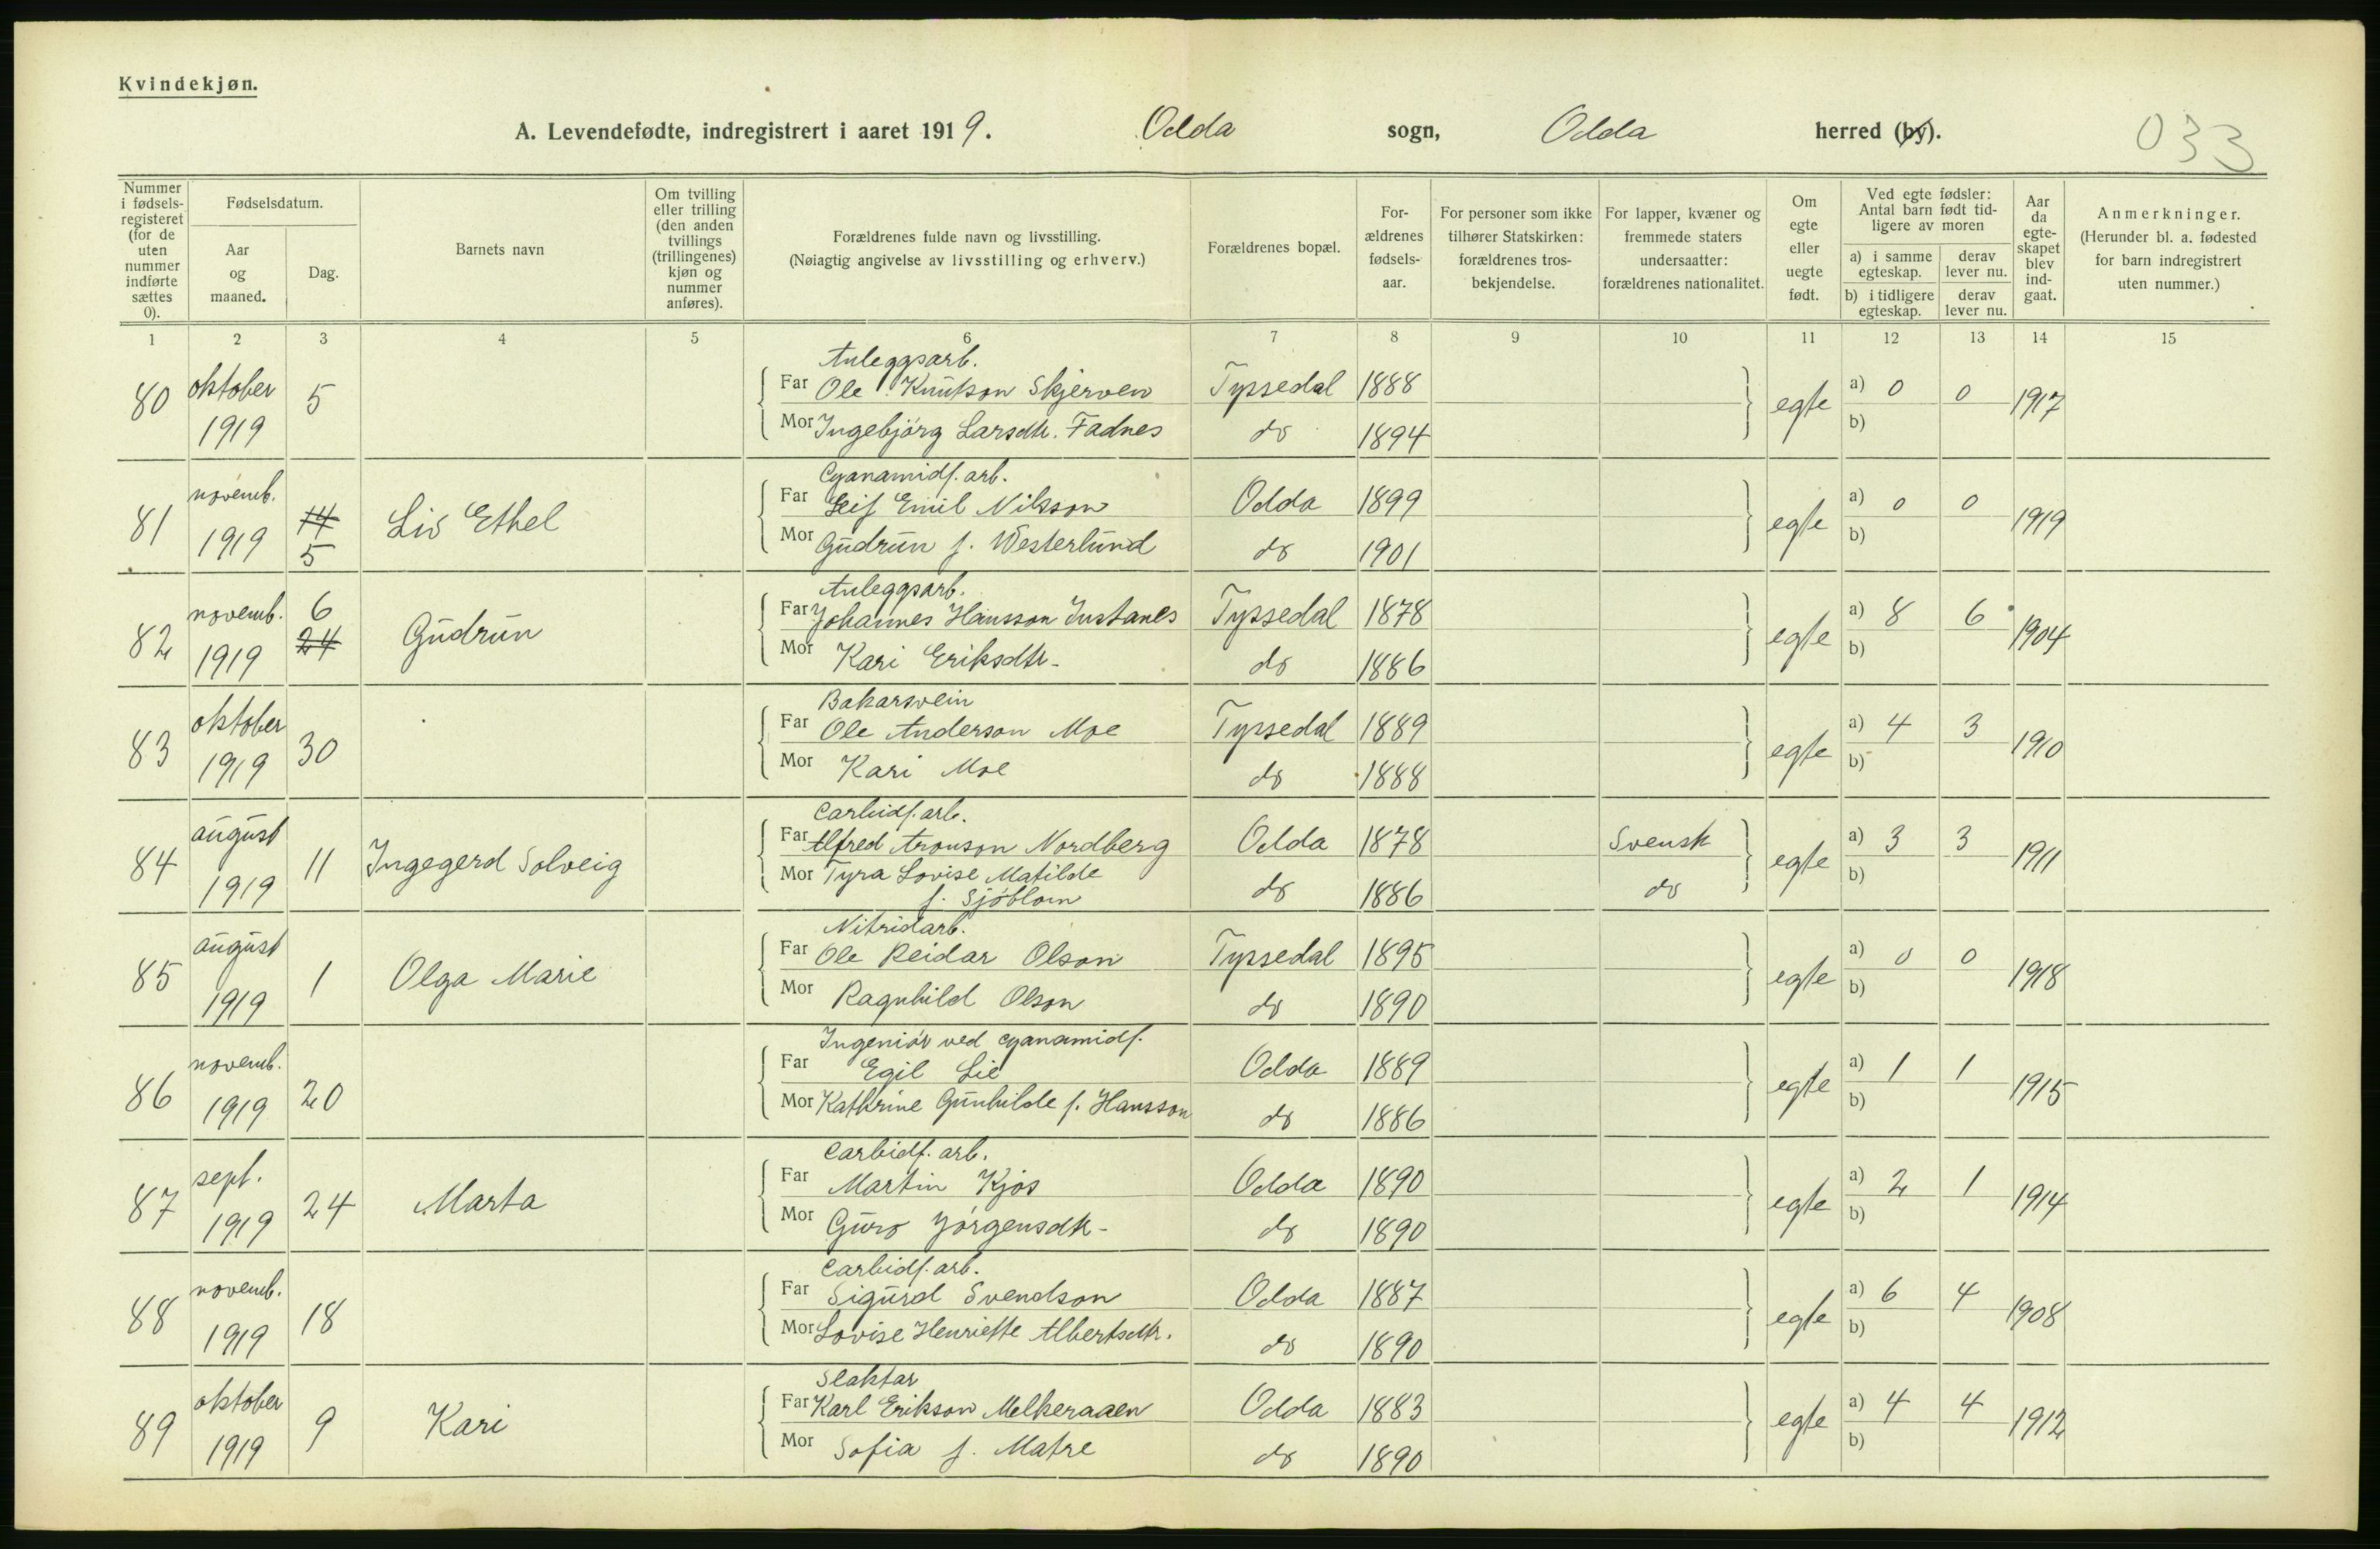 Kvindekjøn.
A. Levendefødte, indregistrert i aaret 1919. Odda sogn, Odda herred (by).
033
Nummer i fødsels-registeret (for de uten nummer indførte sættes 0).
Fødselsdatum.
Aar og maaned.
Dag.
Barnets navn
Om tvilling eller trilling (den anden tvillings (trillingenes) kjøn og nummer anføres).
Forældrenes fulde navn og livsstilling.
(Nøiagtig angivelse av livsstilling og erhverv.)
Forældrenes bopæl.
For-ældrenes fødsels-aar.
For personer som ikke tilhører Statskirken: forældrenes tros-bekjendelse.
For lapper, kvæner og fremmede staters undersaatter: forældrenes nationalitet.
Om egte eller uegte født.
Ved egte fødsler: Antal barn født tid-ligere av moren
a) i samme egteskap.
derav lever nu.
b) i tidligere egteskap.
derav lever nu.
Aar da egte-skapet blev ind-gaat.
Anmerkninger.
(Herunder bl. a. fødested for barn indregistrert uten nummer.)
1 2 3 4 5 6 7 8 9 10 11 12 13 14 15
Anleggsarb.
80 oktober 1919 5 Far Ole Knutson Skjerven Tyssedal 1888 egte a) 0 0 1917
Mor Ingebjörg Larsdtr. Fadnes do 1894 b)
Cyanamidf. arb.
81 novemb. 1919 14 5 Liv Ethel Far Leif Emil Nilsson Odda 1899 egte a) 0 0 1919
Mor Gudrun f. Westerlund do 1901 b)
Anleggsarb.
82 novemb. 1919 6 24 Gudrun Far Johannes Hansson Instanes Tyssedal 1878 egte a) 8 6 1904
Mor Kari Eriksdtr. do 1886 b)
Bakarsvein
83 oktober 1919 30 Far Ole Anderson Moe Tyssedal 1889 egte a) 4 3 1910
Mor Kari Moe do 1888 b)
Carbidf. arb.
84 august 1919 11 Ingegerd Solveig Far Alfred Aronson Nordberg Odda 1878 Svensk egte a) 3 3 1911
Mor Tyra Lovise Matilde do 1886 do b)
f. Sjöblom
Nitridarb.
85 august 1919 1 Olga Marie Far Ole Reidar Olson Tyssedal 1895 egte a) 0 0 1918
Mor Ragnhild Olson do 1890 b)
Ingeniör ved cyanamidf.
86 novemb. 1919 20 Far Egil Lie Odda 1889 egte a) 1 1 1915
Mor Kathrine Gunhilde f. Hansson do 1886 b)
Carbidf. arb.
87 sept. 1919 24 Marta Far Martin Kjos Odda 1890 egte a) 2 1 1914
Mor Guro Jörgensdtr. do 1890 b)
Carbidf. arb.
88 novemb. 1919 18 Far Sigurd Svendson Odda 1887 egte a) 6 4 1908
Mor Lovise Henriette Albertsdtr. do 1890 b)
Slaktar
89 oktober 1919 9 Kari Far Karl Erikson Melkeraaen Odda 1883 egte a) 4 4 1912
Mor Sofia f. Matre do 1890 b)